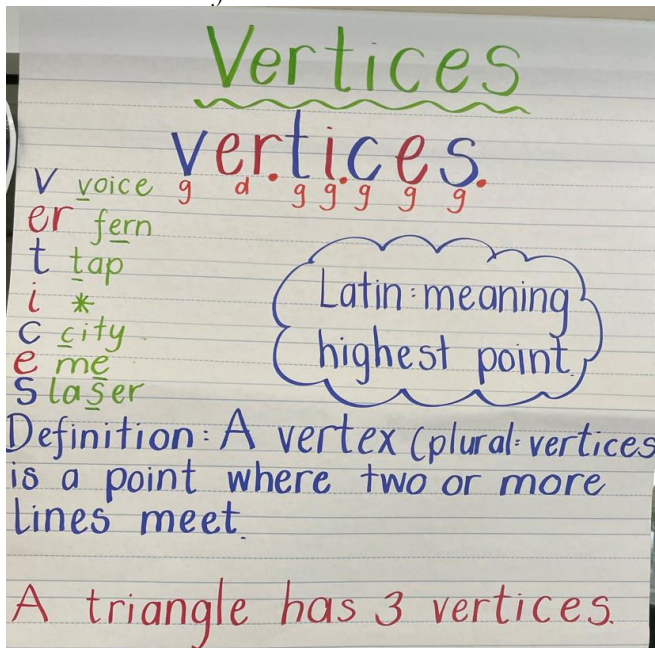 Vertices
ver.ti.ces.
g d g g g g g
V voice
er fern
t tap
i *
c city
e me
s laser
Latin: meaning
highest point.
Definition: A vertex (plural: vertices
is a point where two or more
lines meet.
A triangle has 3 vertices.